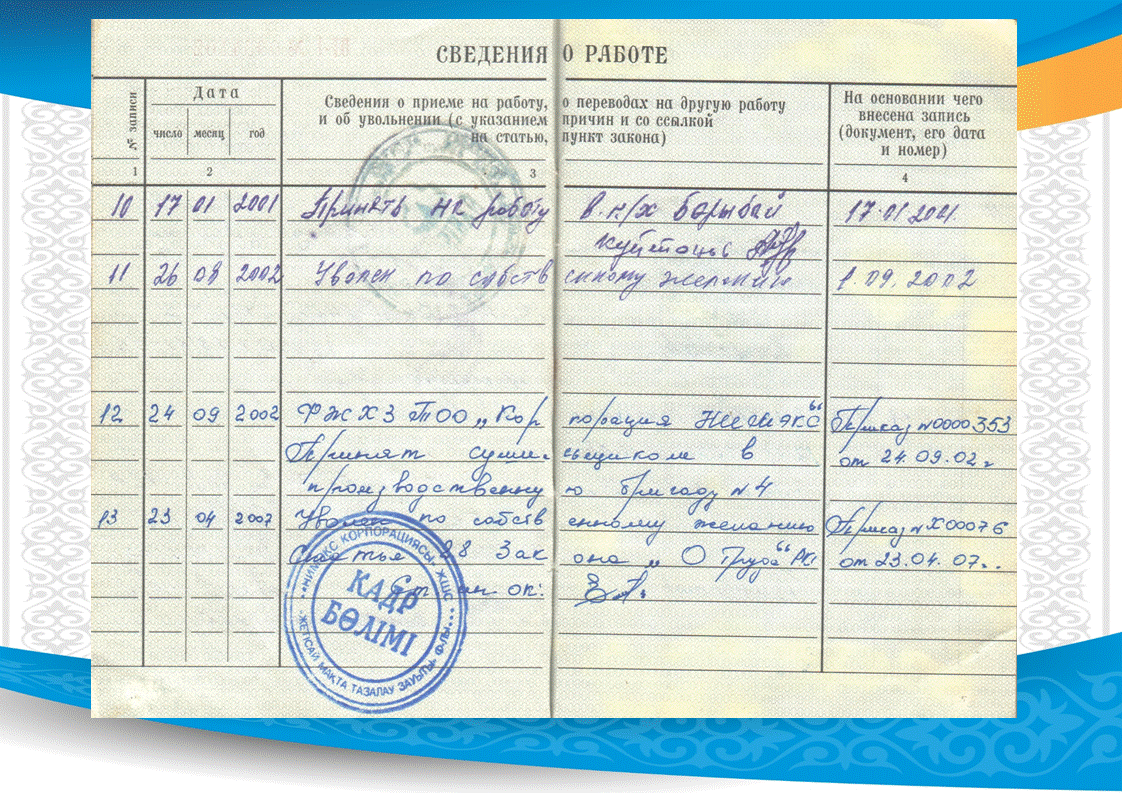 СВЕДЕНИЯ О РАБОТЕ
№ записи
Дата
число месяц год
Сведения о приеме на работу, о переводах на другую работу
и об увольнении (с указанием причин и со ссылкой
на статью, пункт закона)
На основании чего
внесена запись
(документ, его дата
и номер)
1 2 3 4
10 17 01 2001 Принять на работу в к/х Борыбай 17.01.2001.
11 26 08 2002 Уволен по собственному желании 1.09.2002
12 24 09 2002 ФЖХЗ ТОО „Корпорация Нимэкс“ Приказ №0000353
Принят сушильщиком в от 24.09.02г
производственную бригаду №4
13 23 04 2007 Уволен по собственному желанию Приказ №Х00076
Статья 28 Закона „О Труде“ РК от 23.04.07..
КОРПОРАЦИЯСЫ, ЖШС
КАДР
БӨЛІМІ
ЖЕТІСАЙ МАҚТА ТАЗАЛАУ ЗАУЫТЫ, Ф-ЛЫ